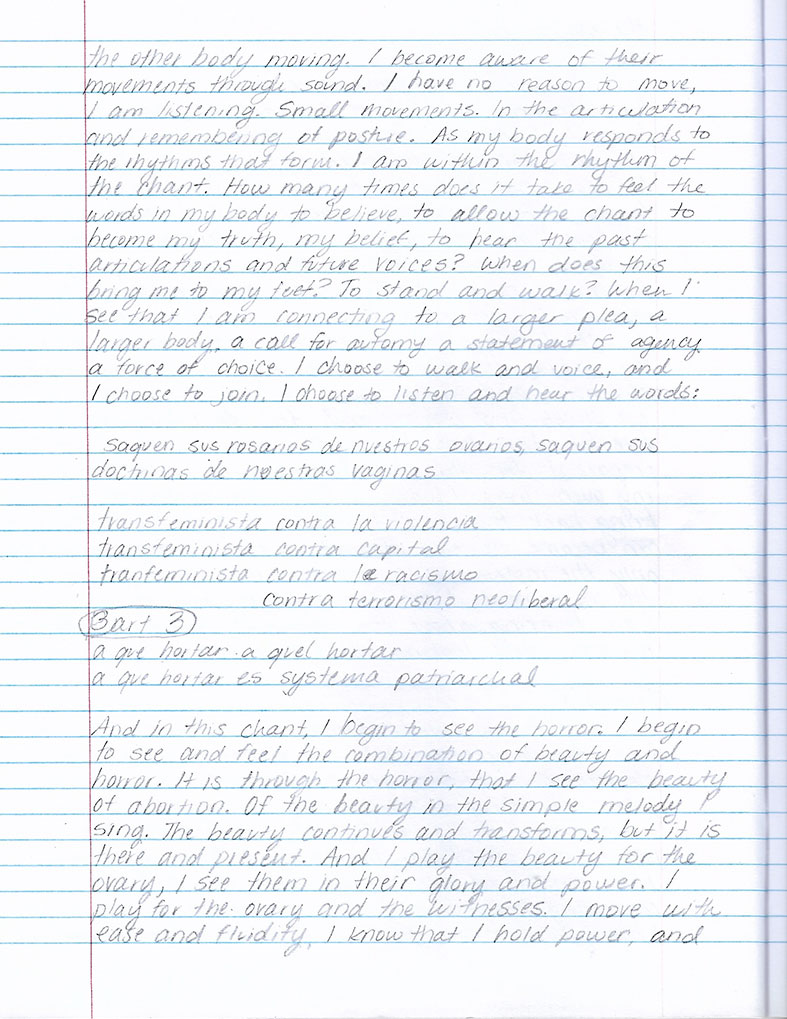 the other body moving. I become aware of their
movements through sound. I have no reason to move,
I am listening. Small movements. In the articulation
and remembering of posture. As my body responds to
the rhythms that form. I am within the rhythm of
the chant. How many times does it take to feel the
words in my body to believe, to allow the chant to
become my truth, my belief, to hear the past
articulations and future voices? When does this
bring me to my feet? To stand and walk? When I
see that I am connecting to a larger plea, a
larger body, a call for automy a statement of agency
a force of choice. I choose to walk and voice, and
I choose to join. I choose to listen and hear the words:
saquen sus rosarios de nuestros ovarios, saquen sus
doctrinas de nuestras vaginas
transfeminista contra la violencia
transfeminista contra capital
tranfeminista contra le racismo
contra terrorismo neoliberal
Bart 3
a que hortar a quel hortar
a que hortar es systema patriarchal
And in this chant, I begin to see the horror. I begin
to see and feel the combination of beauty and
horror. It is through the horror, that I see the beauty
of abortion. Of the beauty in the simple melody I
sing. The beauty continues and transforms, but it is
there and present. And I play the beauty for the
ovary, I see them in their glory and power. I
play for the ovary and the witnesses. I move with
ease and fluidity, I know that I hold power, and